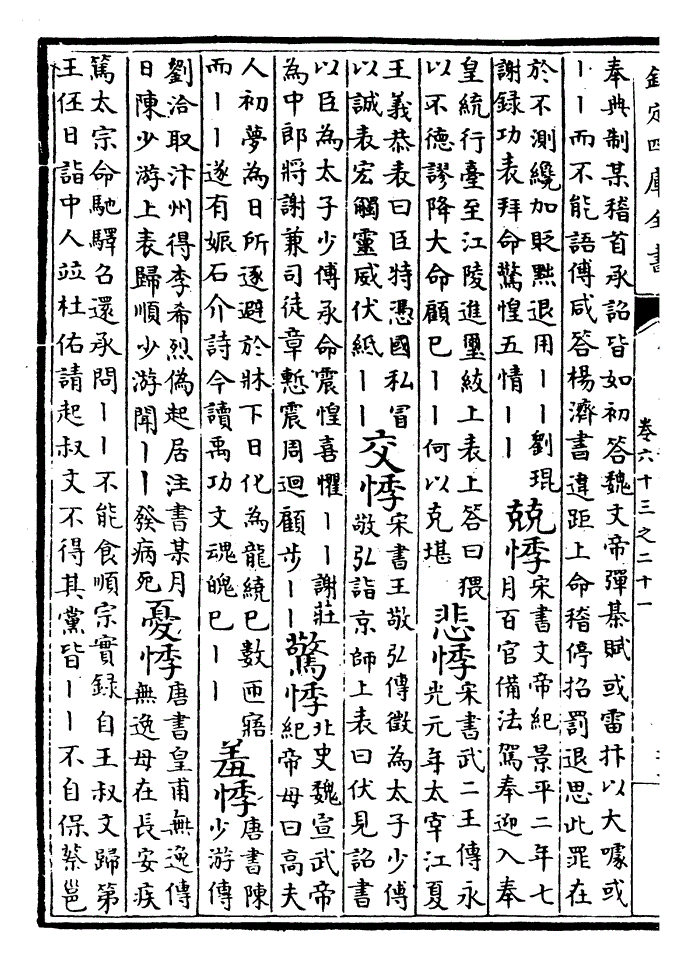 欽定四庫全書
卷六十三之二十一
奉典制某稽首承詔皆如初答魏文帝彈棊賦或雷抃以大噱或
丨丨而不能語傅咸答楊濟書違距上命稽停招罰退思此罪在
於不測纔加貶黜退用丨丨劉琨
謝録功表拜命驚惶五情丨丨
兢悸
宋書文帝紀景平二年七
月百官備法駕奉迎入奉
皇統行臺至江陵進璽紱上表上答曰猥
以不德謬降大命顧已丨丨何以克堪
悲悸
宋書武二王傳永
光元年太宰江夏
王義恭表曰臣特憑國私冒
以誠表宏觸靈威伏紙丨丨
交悸
宋書王敬弘傳徵為太子少傅
敬弘詣京師上表曰伏見詔書
以臣為太子少傅承命震惶喜懼丨丨謝莊
為中郎將謝兼司徒章慙震周迴顧步丨丨
驚悸
北史魏宣武帝
紀帝母曰高夫
人初夢為日所逐避於牀下日化為龍繞已數匝寤
而丨丨遂有娠石介詩今讀禹功文魂魄已丨丨
羞悸
唐書陳
少游傳
劉洽取汴州得李希烈偽起居注書某月
日陳少游上表歸順少游聞丨丨發病死
憂悸
唐書皇甫無逸傳
無逸母在長安疾
篤太宗命馳驛召還承問丨丨不能食順宗實録自王叔文歸第
王伾日詣中人竝杜佑請起叔文不得其黨皆丨丨不自保蔡邕